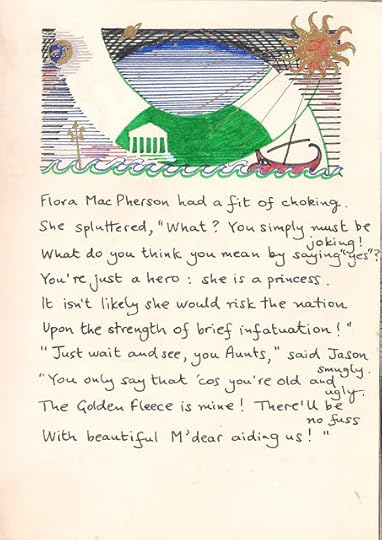 Flora MacPherson had a fit of choking.
She spluttered, "What? You simply must be joking!
What do you think you mean by saying "yes"?
You're just a hero: she is a princess.
It isn't likely she would risk the nation
Upon the strength of brief infatuation!"
"Just wait and see, you Aunts," said Jason smugly.
"You only say that 'cos you're old and ugly.
The Golden Fleece is mine! There'll be no fuss
With beautiful M'dear aiding us!"